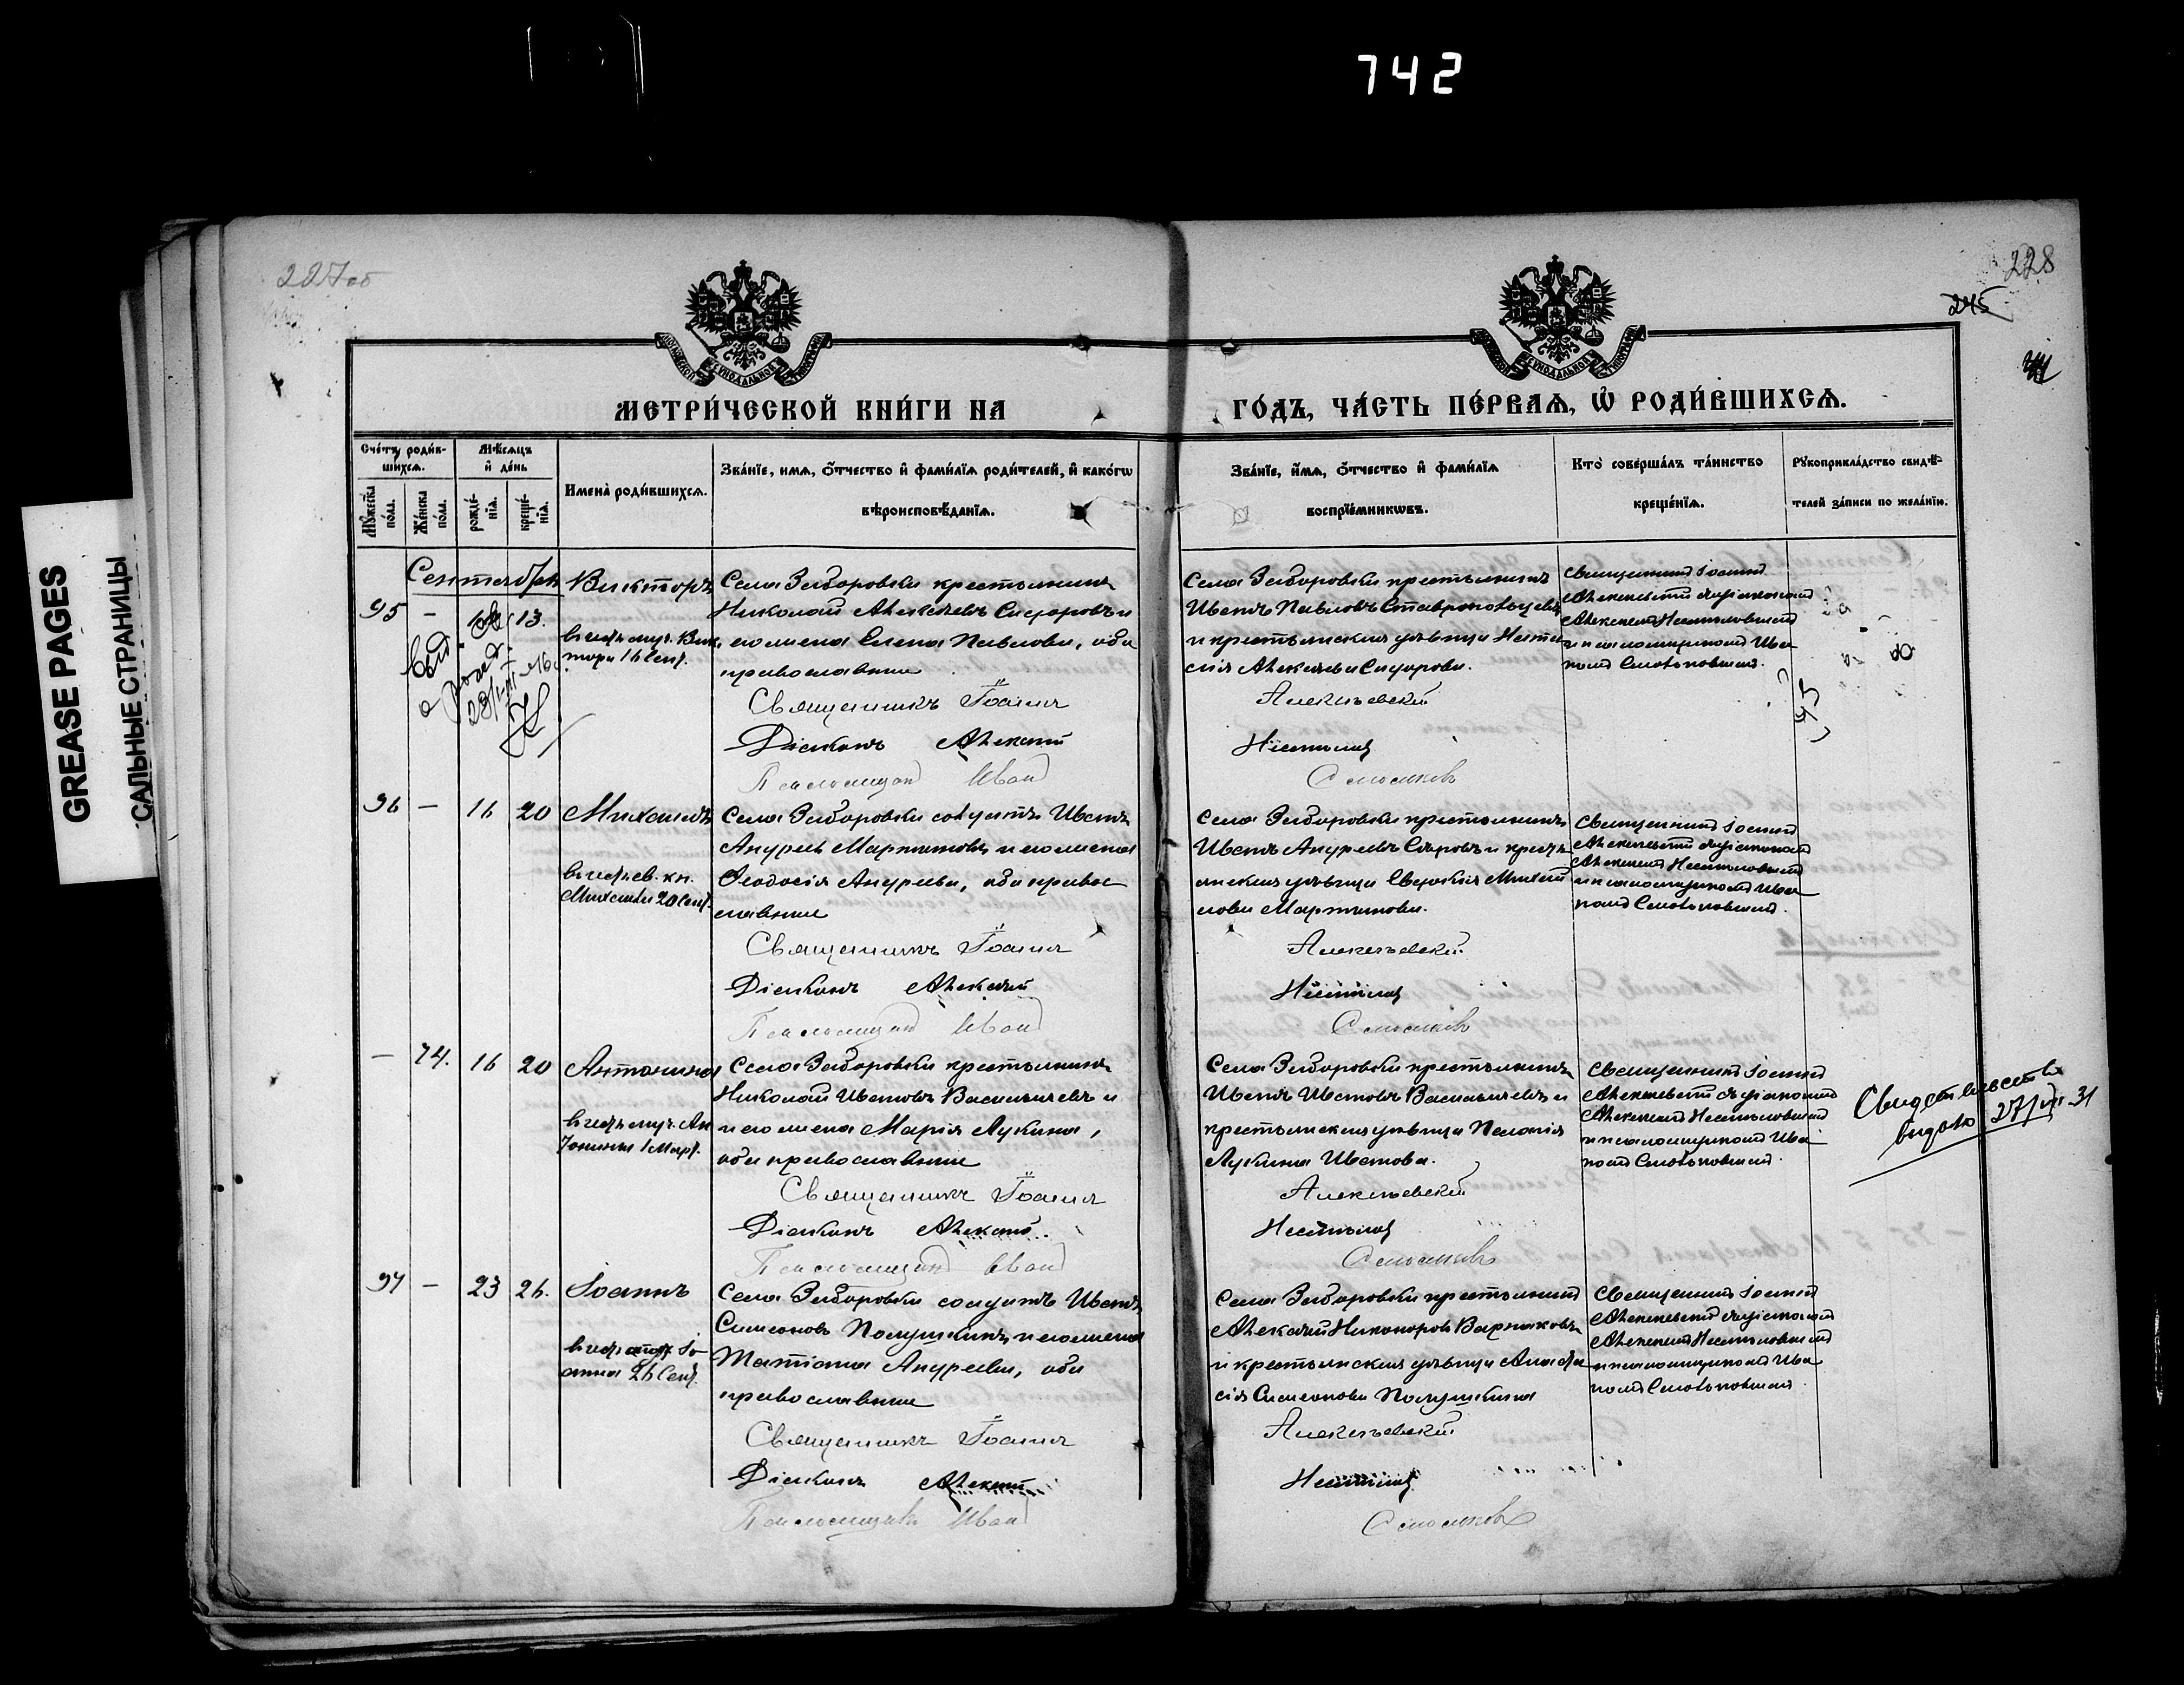 742
GREASE PAGES
САЛЬНЫЕ СТРАНИЦЫ
227об
228
245
МЕТРИ́ЧЕСКОЙ КНИ́ГИ НА
ГО́ДЪ, ЧА́СТЬ ПЕ́РВАѦ, Ѽ РОДИ́ВШИХСѦ.
Счетъ роди́в-
шихсѧ.
Мѣсѧцъ
и де́нь
Имена̀ роди́вшихсѧ.
Зва́нїе, имѧ, ѻ҆́тчество и҆ фами́лїѧ роди́телей, и҆ како́гѡ
вѣроисповѣ́данїѧ.
Мꙋ́жеска
по́ла.
Же́нска
по́ла.
рожде́-
нїѧ.
креще́-
нїѧ.
Зва́нїе, и҆́мѧ, ѻ҆́тчество и҆ фами́лїѧ
воспрїе́мникѡвъ.
Кто̀ соверша́лъ та́инство
креще́нїѧ.
Рꙋкоприкла́дство свидѣ́-
телей за́писи по жела́нїю.
Сентябрь
95 – 13.
Викторъ
въ честь муч. Вик
тора 16 Сент.
Села Заборовки крестьянинъ
Николай Алексѣевъ Сидоровъ и
его жена Елена Павлова, оба
православные
Священникъ Іоаннъ
Діаконъ Алексѣй
Псаломщикъ Иванъ
Села Заборовки крестьянинъ
Иванъ Павловъ Ставропольцевъ
и крестьянская дѣвица Наста
сія Алексѣева Сидорова.
Алексѣевскій
Смольковъ
Священникъ Іоаннъ
Алексѣевскій съ діакономъ
и псаломщикомъ Ива
номъ Смольковымъ.
96 – 16 20
Михаилъ
въ честь св. кн.
Михаила 20 Сент.
Села Заборовки солдатъ Иванъ
Андреевъ Мартыновъ и его жена
Ѳеодосія Андреева, оба право
славные
Священникъ Іоаннъ
Діаконъ Алексѣй
Псаломщикъ Иванъ
Села Заборовки крестьянинъ
Иванъ Андреевъ и кресть
янская дѣвица Евдокія Михаи
лова Мартынова.
Алексѣевскій
Смольковъ
Священникъ Іоаннъ
Алексѣевскій съ діакономъ
и псаломщикомъ Ива
номъ Смольковымъ.
– 74. 16 20
Антонина
въ честь муч. Ан
тонины 1 Март.
Села Заборовки крестьянинъ
Николай Ивановъ Васильевъ и
его жена Марія Лукина,
оба православные
Священникъ Іоаннъ
Діаконъ Алексѣй
Псаломщикъ Иванъ
Села Заборовки крестьянинъ
Иванъ Ивановъ Васильевъ и
крестьянская дѣвица Пелагія
Лукина Иванова.
Алексѣевскій
Смольковъ
Священникъ Іоаннъ
Алексѣевскій съ діакономъ
и псаломщикомъ Ива
номъ Смольковымъ.
Свидетельство
выдано 27/VII–31
97 – 23 26.
Іоаннъ
въ честь апост Іо
анна 26 Сент.
Села Заборовки солдатъ Иванъ
Симеоновъ Полушкинъ и его жена
Татіана Андреева, оба
православные
Священникъ Іоаннъ
Діаконъ Алексѣй
Псаломщикъ Иванъ
Села Заборовки крестьянинъ
Алексѣй Никоноровъ Варлаковъ
и крестьянская дѣвица Анаста
сія Симеонова Полушкина
Алексѣевскій
Смольковъ
Священникъ Іоаннъ
Алексѣевскій съ діакономъ
и псаломщикомъ Ива
номъ Смольковымъ.